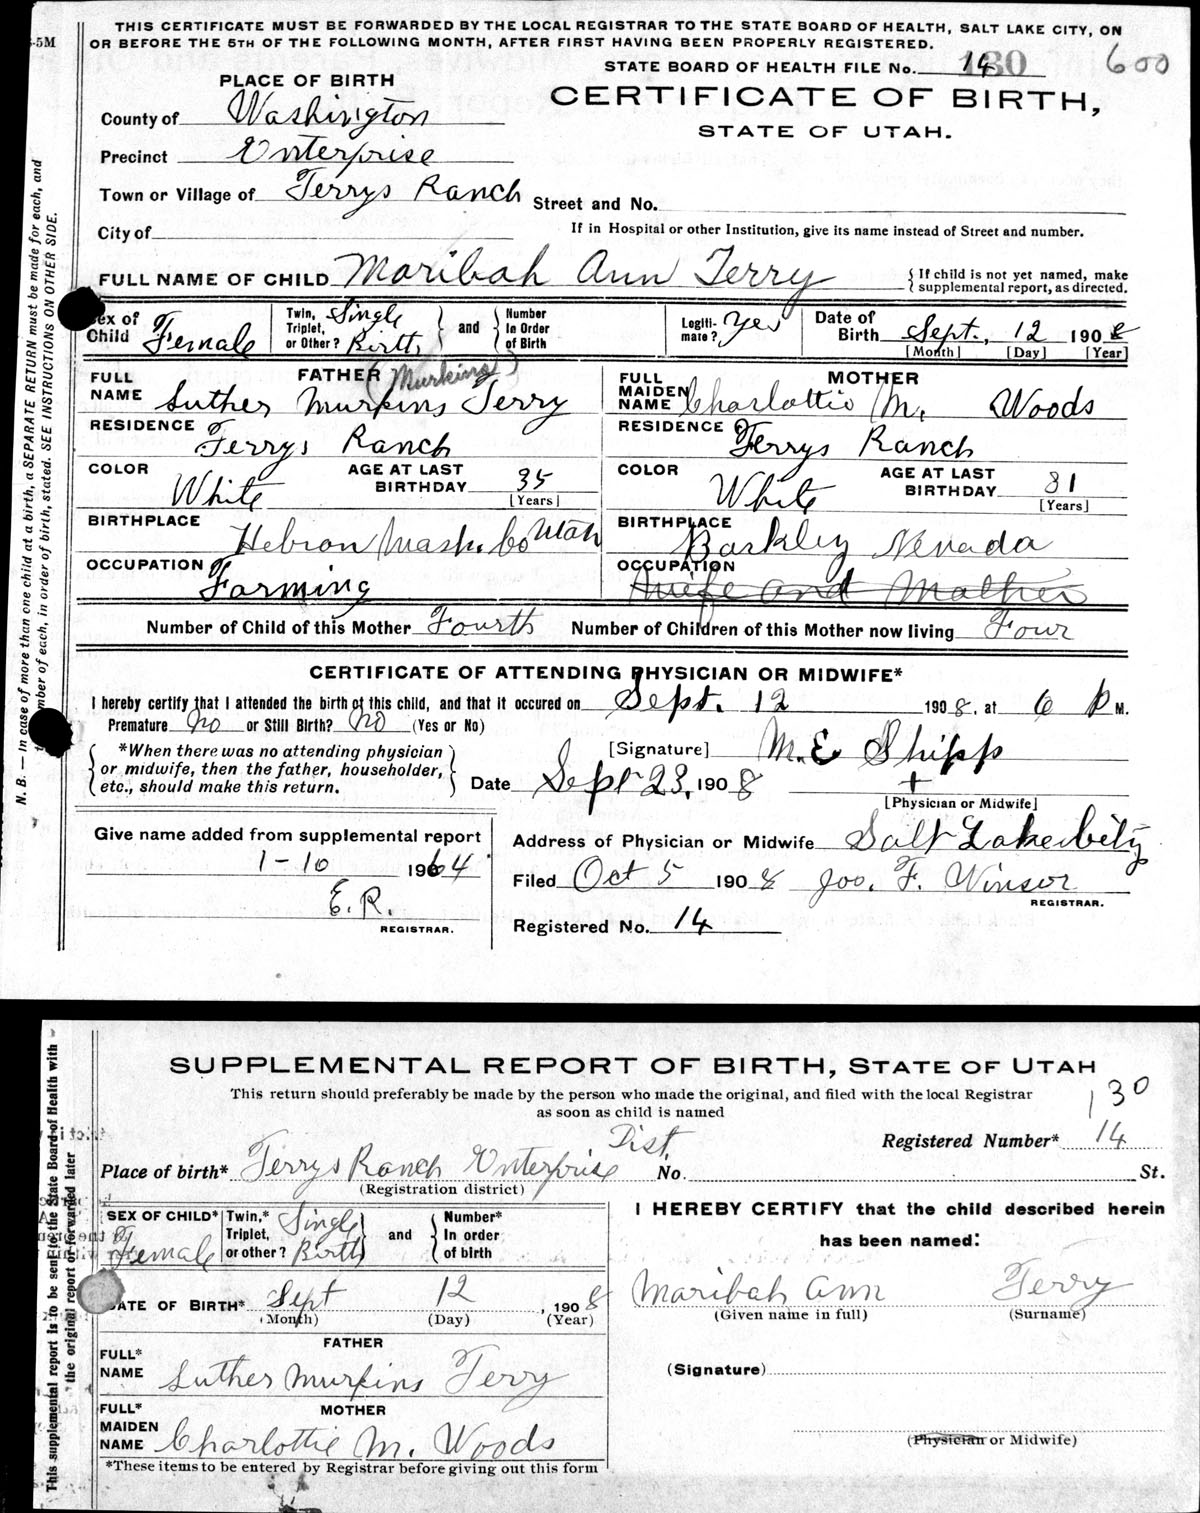 THIS CERTIFICATE MUST BE FORWARDED BY THE LOCAL REGISTRAR TO THE STATE BOARD OF HEALTH, SALT LAKE CITY, ON
OR BEFORE THE 5TH OF THE FOLLOWING MONTH, AFTER FIRST HAVING BEEN PROPERLY REGISTERED.
-5M
STATE BOARD OF HEALTH FILE No. 14 130 600
PLACE OF BIRTH
CERTIFICATE OF BIRTH,
STATE OF UTAH.
County of Washington
Precinct Enterprise
Town or Village of Terrys Ranch Street and No.
City of If in Hospital or other Institution, give its name instead of Street and number.
FULL NAME OF CHILD Maribah Ann Terry { If child is not yet named, make supplemental report, as directed.
Sex of Child Female Twin, Triplet, or Other? Single Birth and Number In Order of Birth Legiti-mate? Yes Date of Birth Sept. 12 1908
[Month] [Day] [Year]
FATHER (Murkins) MOTHER
FULL NAME Luther Murkins Terry FULL MAIDEN NAME Charlottie M. Woods
RESIDENCE Terrys Ranch RESIDENCE Terrys Ranch
COLOR White AGE AT LAST BIRTHDAY 35 [Years] COLOR White AGE AT LAST BIRTHDAY 31 [Years]
BIRTHPLACE Hebron Wash. Co Utah BIRTHPLACE Barkley Nevada
OCCUPATION Farming OCCUPATION Wife and Mother
Number of Child of this Mother Fourth Number of Children of this Mother now living Four
CERTIFICATE OF ATTENDING PHYSICIAN OR MIDWIFE*
I hereby certify that I attended the birth of this child, and that it occured on Sept. 12 1908, at 6 P M.
Premature No or Still Birth? No (Yes or No)
*When there was no attending physician or midwife, then the father, householder, etc., should make this return.
[Signature] M. E Shipp
Date Sept 23, 1908
[Physician or Midwife]
Give name added from supplemental report
1-10 1964
E. R.
REGISTRAR.
Address of Physician or Midwife Salt Lake City
Filed Oct 5 1908 Joo. F. Winsor
REGISTRAR.
Registered No. 14
N. B. — In case of more than one child at a birth, a SEPARATE RETURN must be made for each, and
number of each, in order of birth, stated. SEE INSTRUCTIONS ON OTHER SIDE.
SUPPLEMENTAL REPORT OF BIRTH, STATE OF UTAH
This return should preferably be made by the person who made the original, and filed with the local Registrar
as soon as child is named
130
Registered Number* 14
Place of birth* Terrys Ranch Enterprise Dist. No. St.
(Registration district)
SEX OF CHILD* Female Twin,* Triplet, or other? Single Birth and Number* In order of birth
DATE OF BIRTH* Sept 12, 1908
(Month) (Day) (Year)
FATHER
FULL* NAME Luther Murkins Terry
MOTHER
FULL* MAIDEN NAME Charlottie M. Woods
*These items to be entered by Registrar before giving out this form
I HEREBY CERTIFY that the child described herein
has been named:
Maribah Ann Terry
(Given name in full) (Surname)
(Signature)
(Physician or Midwife)
This supplemental report is to be sent to the State Board of Health with
the original report or forwarded later